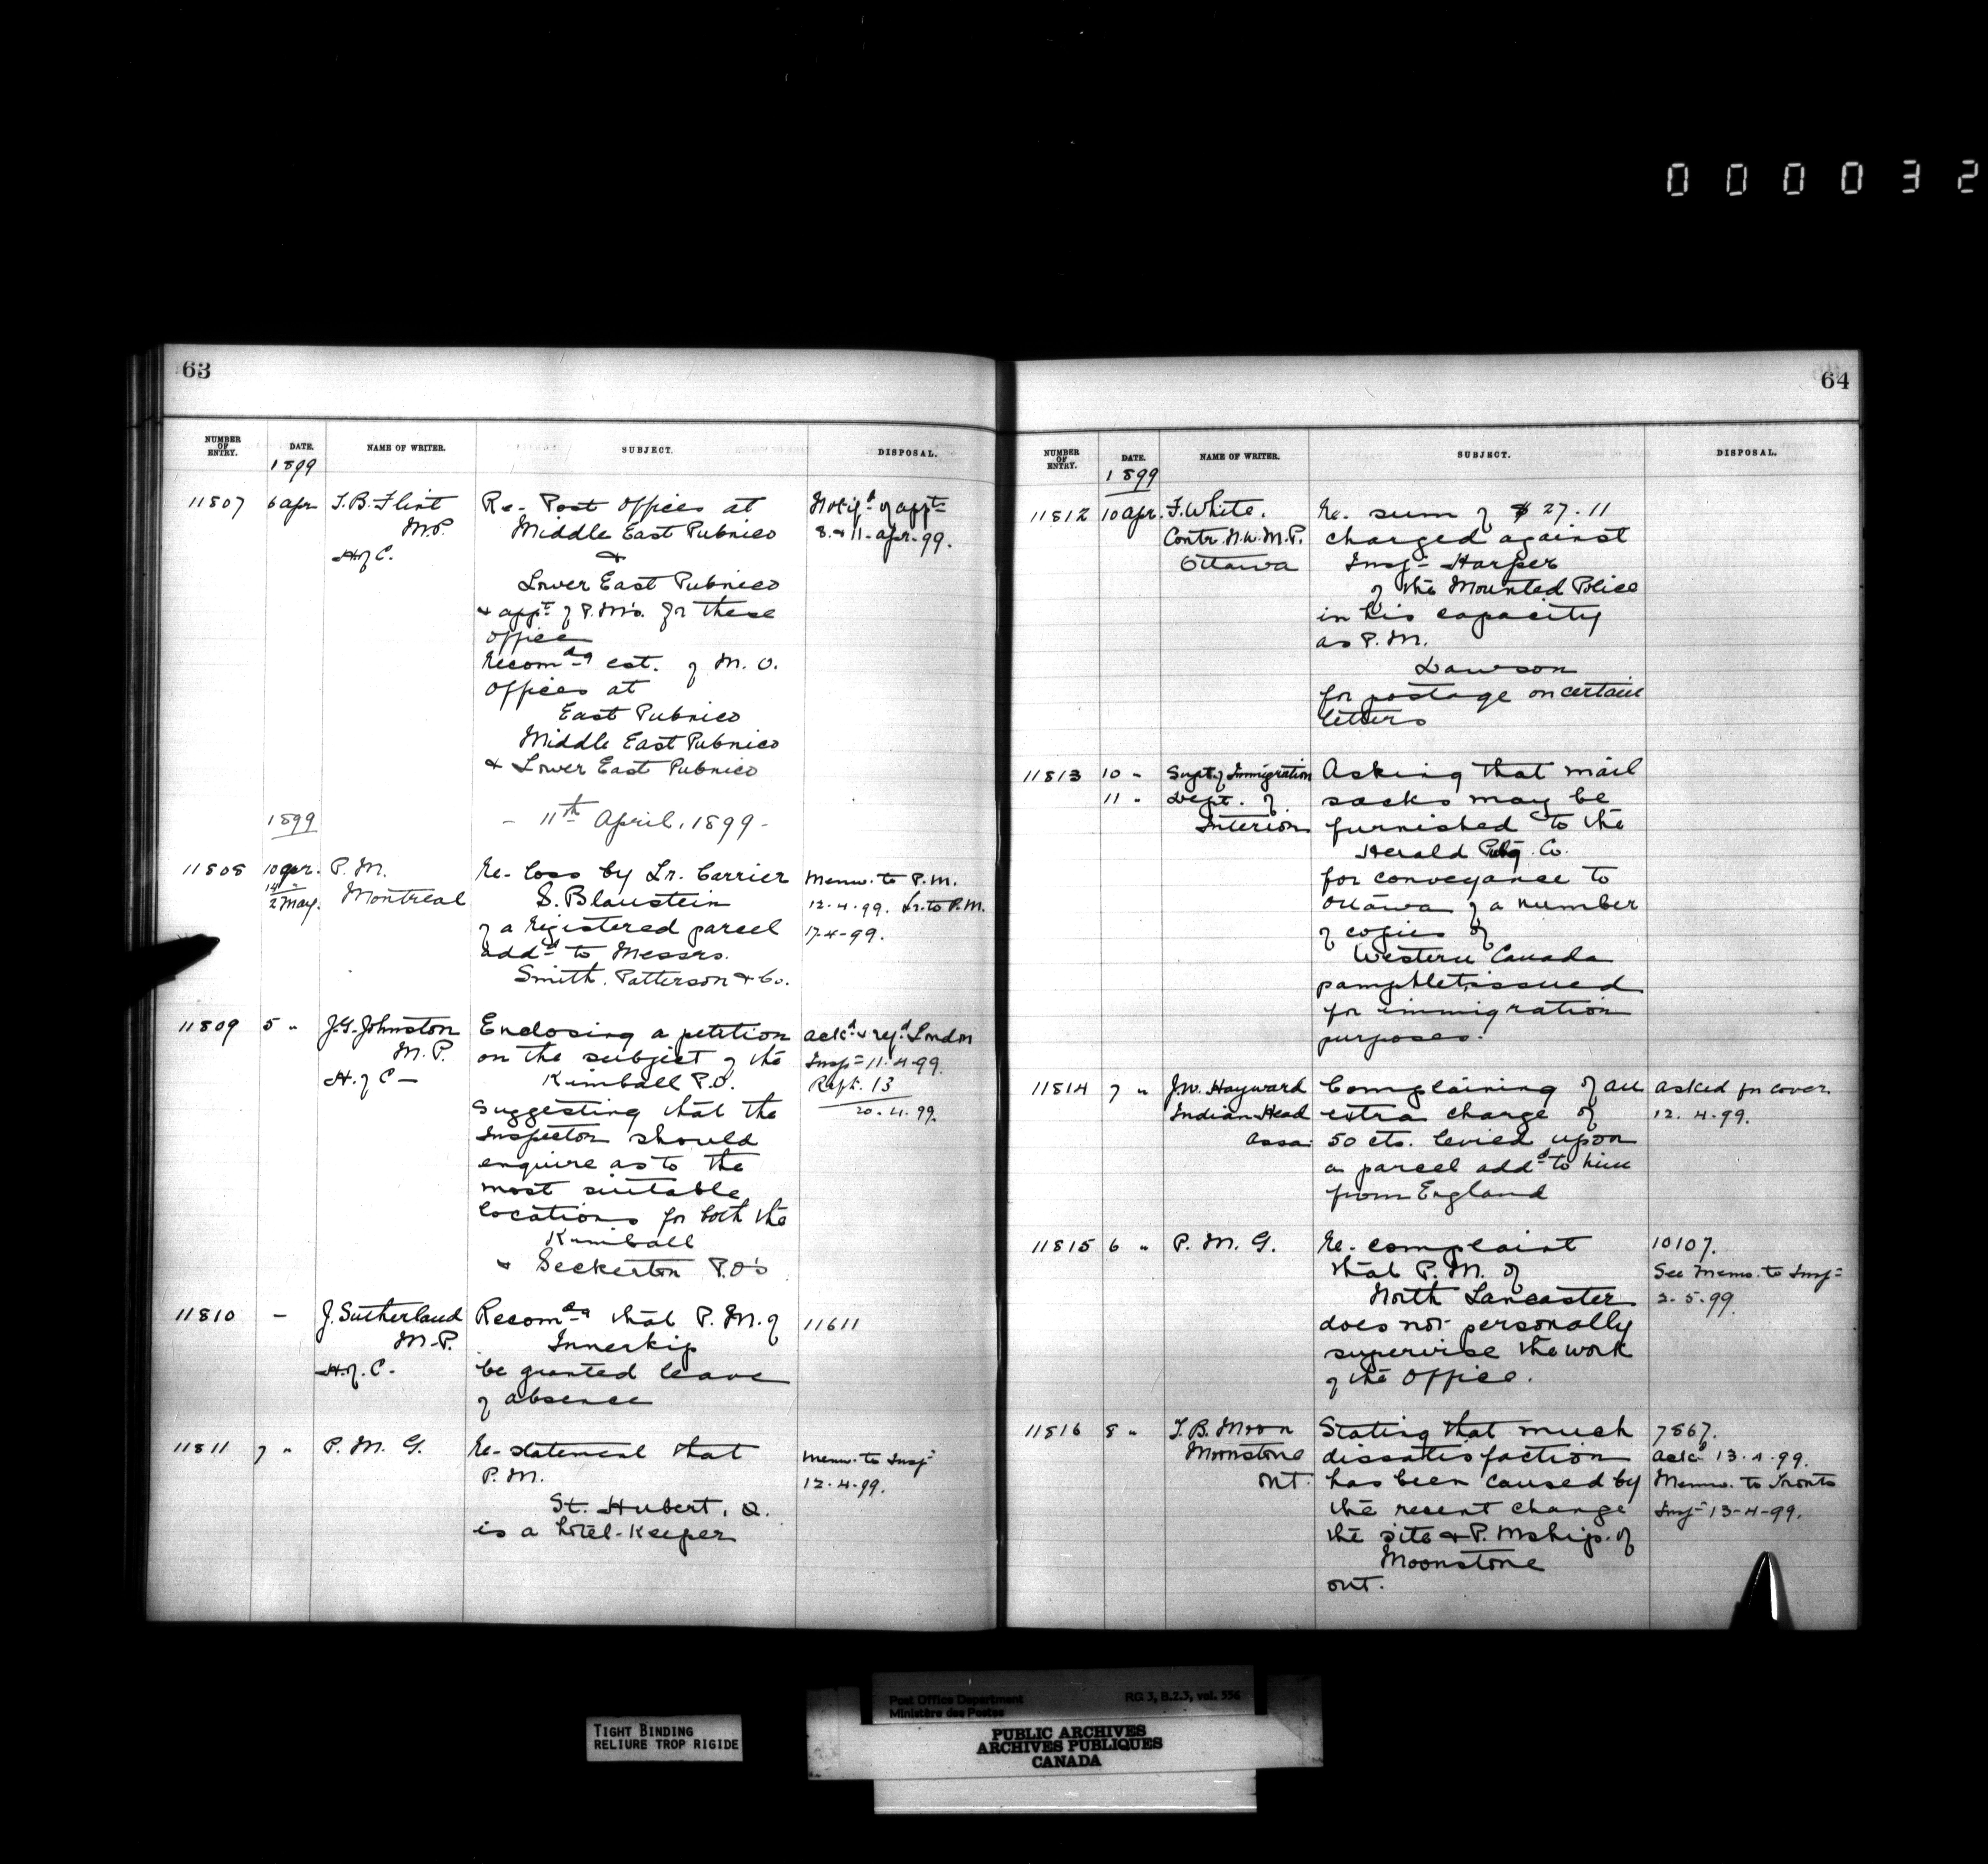 000032
63
NUMBER OF ENTRY. DATE. NAME OF WRITER. SUBJECT. DISPOSAL.
1899
11807 6 apr T.B. Flint Re- Post Offices at Notig.d of appt
M.P. Middle East Pubnico 8. & 11. apr. 99.
H. of C. &
Lower East Pubnico
& appt. of P.M's. for these
offices
Recomdg est. of M.O.
Offices at
East Pubnico
Middle East Pubnico
& Lower East Pubnico
1899 - 11th April, 1899 -
11808 10 apr. P.M. Re- loss by Lr. Carrier Memo. to P.M.
14 "
2 May. Montreal S. Blaustein 12-4-99. Lr. to P.M.
of a registered parcel 17-4-99.
addd to Messrs.
Smith, Patterson & Co.
11809 5 " J.G. Johnston Enclosing a petition ackd & refd London
M.P. on the subject of the Insp- 11-4-99.
H. of C- Kimball P.O. Rept. 13
suggesting that the 20.4.99.
Inspector should
enquire as to the
most suitable
locations for both the
Kimball
& Seckerton P.O's
11810 - J. Sutherland Recomdg that P.M. of 11611
M.P. Innerkip
H. of C- be granted leave
of absence
11811 7 " P.M.G. Re- statement that Memo. to Insp-
P.M. 12-4-99.
St. Hubert, Q.
is a hotel-keeper
64
NUMBER OF ENTRY. DATE. NAME OF WRITER. SUBJECT. DISPOSAL.
1899
11812 10 apr. F. White. Re. sum of $27.11
Contr. N.W.M.P. charged against
Ottawa Insp- Harper
of the Mounted Police
in his capacity
as P.M.
Dawson
for postage on certain
letters
11813 10 " Supt. of Immigration Asking that mail
11 " Dept. of sacks may be
Interior furnished to the
Herald Pubg. Co.
for conveyance to
Ottawa of a number
of copies of
Western Canada
pamphlet issued
for immigration
purposes.
11814 7 " J.W. Hayward Complaining of an asked for cover.
Indian Head extra charge of 12-4-99.
Assa. 50 cts. levied upon
a parcel addd to him
from England
11815 6 " P.M.G. Re- complaint 10107.
that P.M. of See Memo. to Insp-
North Lancaster 2-5-99.
does not personally
supervise the work
of the Office.
11816 8 " T.B. Moon Stating that much 7867.
Moonstone dissatisfaction ackd 13-4-99.
Ont. has been caused by Memo. to Toronto
the recent change Insp- 13-4-99.
the site & P. Mship. of
Moonstone
Ont.
TIGHT BINDING
RELIURE TROP RIGIDE
Post Office Department RG 3, B.2.3, vol. 556
Ministère des Postes
PUBLIC ARCHIVES
ARCHIVES PUBLIQUES
CANADA